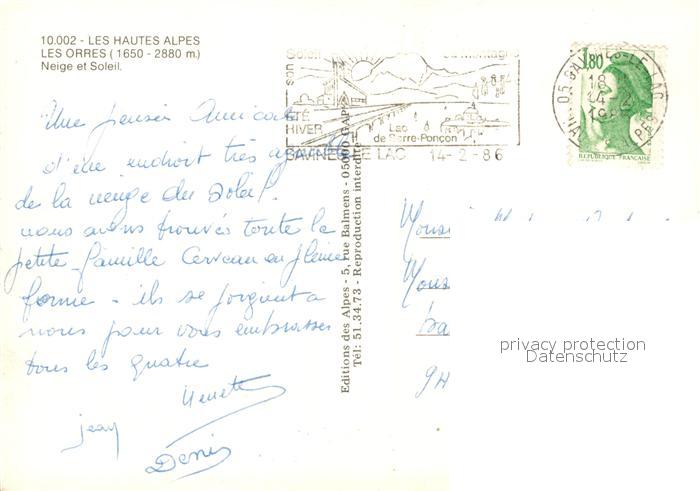 10.002 - LES HAUTES ALPES
LES ORRES ( 1650 - 2880 m.)
Neige et Soleil.
Une pensée Amicale
d'un endroit très agréable
de la neige du Soleil.
nous avons trouvés toute la
petite famille Cerveau en pleine
forme - ils se joignent a
nous pour vous embrasser
tous les quatre
jean
Denis
Soleil
la Montagne
ETE
HIVER
Lac
de Serre-Ponçon
SAVINES LE LAC 14-2-86
1,80
REPUBLIQUE FRANÇAISE
05 SAVINES-LE-LAC
18 H
14-2
Editions des Alpes - 5, rue Balmens - 05000 GAP
Tél: 51.34.73 - Reproduction interdite
privacy protection
Datenschutz